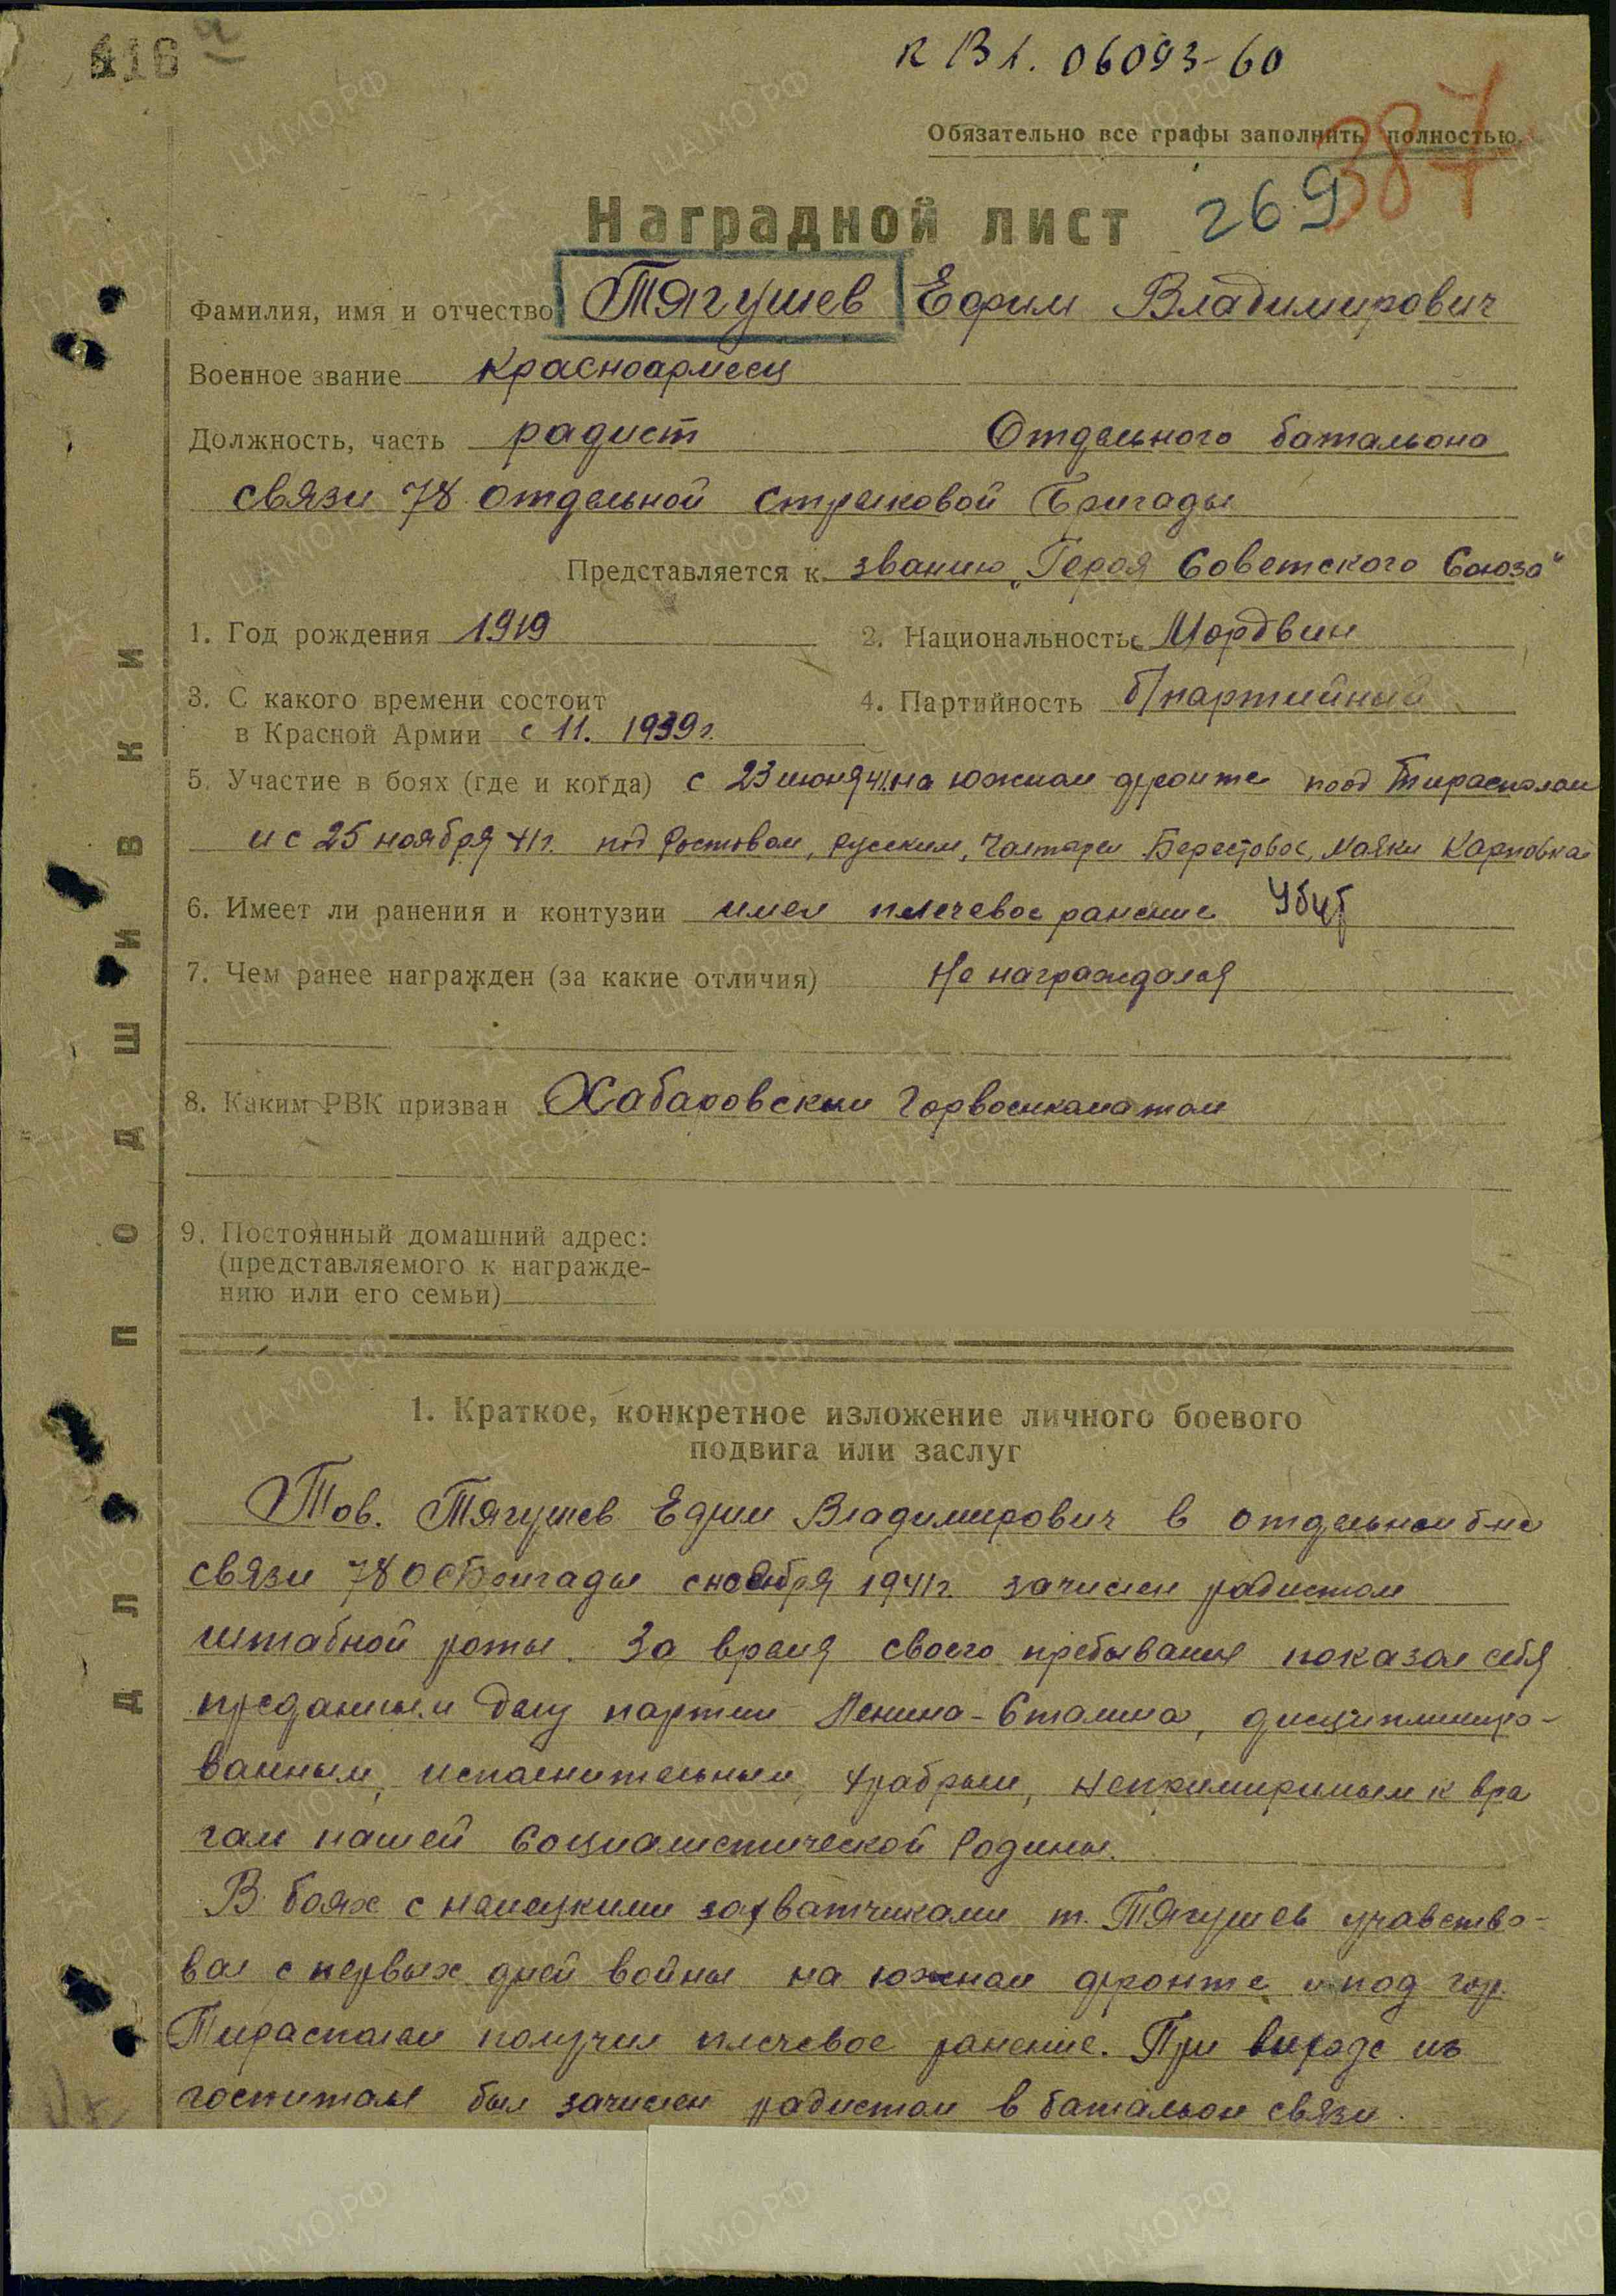 416
к В1. 06093-60
Обязательно все графы заполнить полностью.
387
269
Наградной лист
Фамилия, имя и отчество Тягушев Ефрим Владимирович
Военное звание красноармеец
Должность, часть радист Отдельного батальона
связи 78 отдельной стрелковой Бригады
Представляется к званию „Героя Советского Союза"
1. Год рождения 1919 2. Национальность Мордвин
3. С какого времени состоит 4. Партийность б/партийный
в Красной Армии с 11. 1939 г.
5. Участие в боях (где и когда) с 23 июня 41г. на южном фронте под Тирасполем
и с 25 ноября 41г. под Ростовом, Русским, Берестовое, Маяки Карповка
6. Имеет ли ранения и контузии имел плечевое ранение Убит
7. Чем ранее награжден (за какие отличия) Не награждался
8. Каким РВК призван Хабаровским Горвоенкоматом
9. Постоянный домашний адрес:
(представляемого к награжде-
нию или его семьи)
Для подшивки
1. Краткое, конкретное изложение личного боевого
подвига или заслуг
Тов. Тягушев Ефрим Владимирович в отдельном б-не
связи 78 ОСБригады с ноября 1941г. зачислен радистом
штабной роты. За время своего пребывания показал себя
преданным делу партии Ленина-Сталина, дисциплиниро-
ванным, исполнительным, храбрым, непримиримым к вра
гам нашей Социалистической Родины.
В боях с немецкими захватчиками т. Тягушев учавство-
вал с первых дней войны на южном фронте и под гор.
Тирасполем получил плечевое ранение. При выходе из
госпиталя был зачислен радистом в батальон связи.